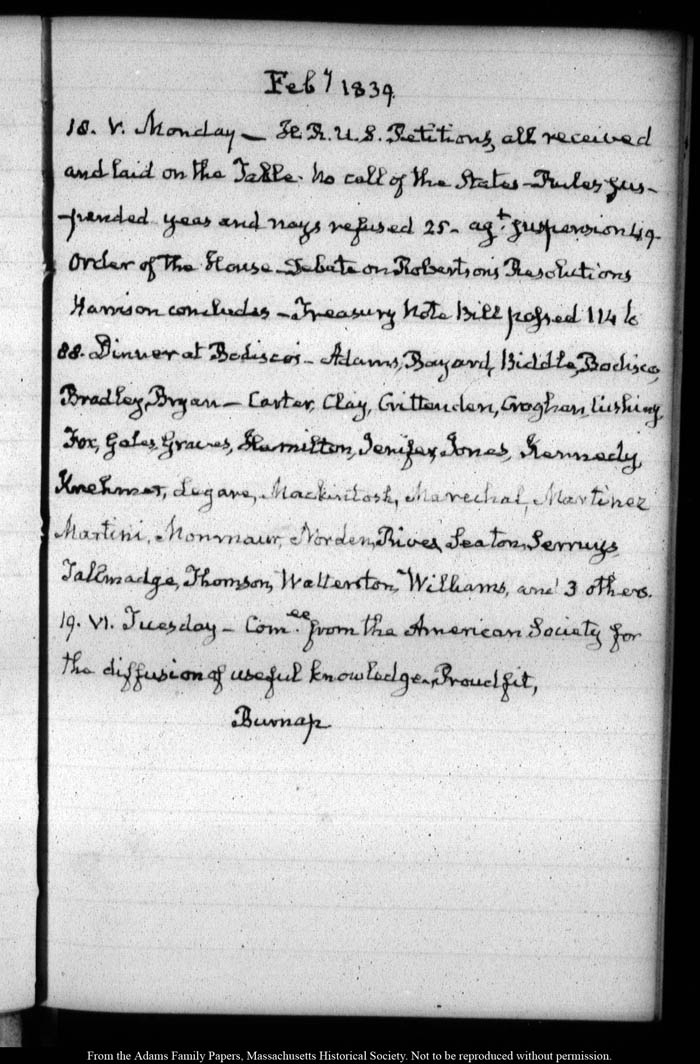 Feby 1839.
18. V. Monday – H. R. U. S. Petitions, all received
and laid on the Table. No call of the States – Rules sus-
-pended yeas and nays refused 25 – agt. suspension 49
Order of the House – Debate on Robertson's Resolutions
Harrison concludes – Treasury Note Bill passed 114 to
88. Dinner at Bodisco's – Adams, Bayard, Biddle, Bodisco,
Bradley, Bryan – Carter, Clay, Crittenden, Croghan, Cushing,
Fox, Gales, Graves, Hamilton, Jenifer, Jones, Kennedy,
Krehmer, Legare, Mackintosh, Marechal, Martinez
Martini, Monmaur, Norden, Rives, Seaton, Serruys
Tallmadge, Thomson, Watterston, Williams, and 3 others.
19. VI. Tuesday – Comee. from the American Society for
the diffusion of useful knowledge, Proudfit,
Burnap
From the Adams Family Papers, Massachusetts Historical Society. Not to be reproduced without permission.